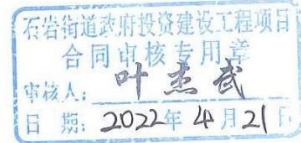 石岩街道政府投资建设工程项目
合同审核专用章
审核人:叶杰武
日期:2022年4月21日